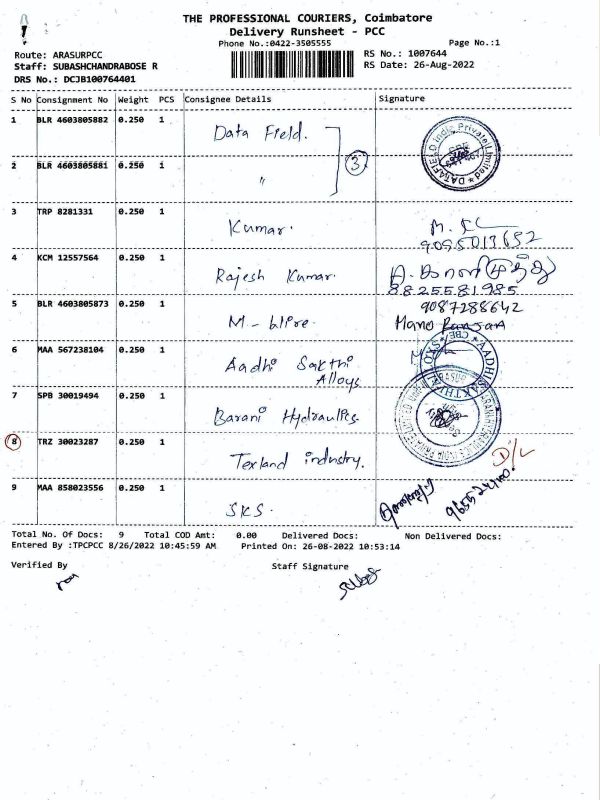 THE PROFESSIONAL COURIERS, Coimbatore
Delivery Runsheet - PCC
Phone No.:0422-3505555
Page No.:1
Route: ARASURPCC
RS No.: 1007644
Staff: SUBASHCHANDRABOSE R
RS Date: 26-Aug-2022
DRS No.: DCJB100764401
S No Consignment No Weight PCS Consignee Details Signature
1 BLR 4603805882 0.250 1 Data Field.
DATAFIELD India Private Limited
2 BLR 4603805881 0.250 1 "
3
3 TRP 8281331 0.250 1 Kumar.
9095013652
4 KCM 12557564 0.250 1 Rajesh Kumar.
8825581985
5 BLR 4603805873 0.250 1 M-
9087288642
Mano Ranjan
6 MAA 567238104 0.250 1 Aadhi Sakthi
Alloys
AADHI SAKTHI
7 SPB 30019494 0.250 1 Barani Hydraulics
8 TRZ 30023287 0.250 1 Texland industry.
D/L
9 MAA 858023556 0.250 1 SKS.
Total No. Of Docs: 9 Total COD Amt: 0.00 Delivered Docs: Non Delivered Docs:
Entered By :TPCPCC 8/26/2022 10:45:59 AM Printed On: 26-08-2022 10:53:14
Verified By Staff Signature